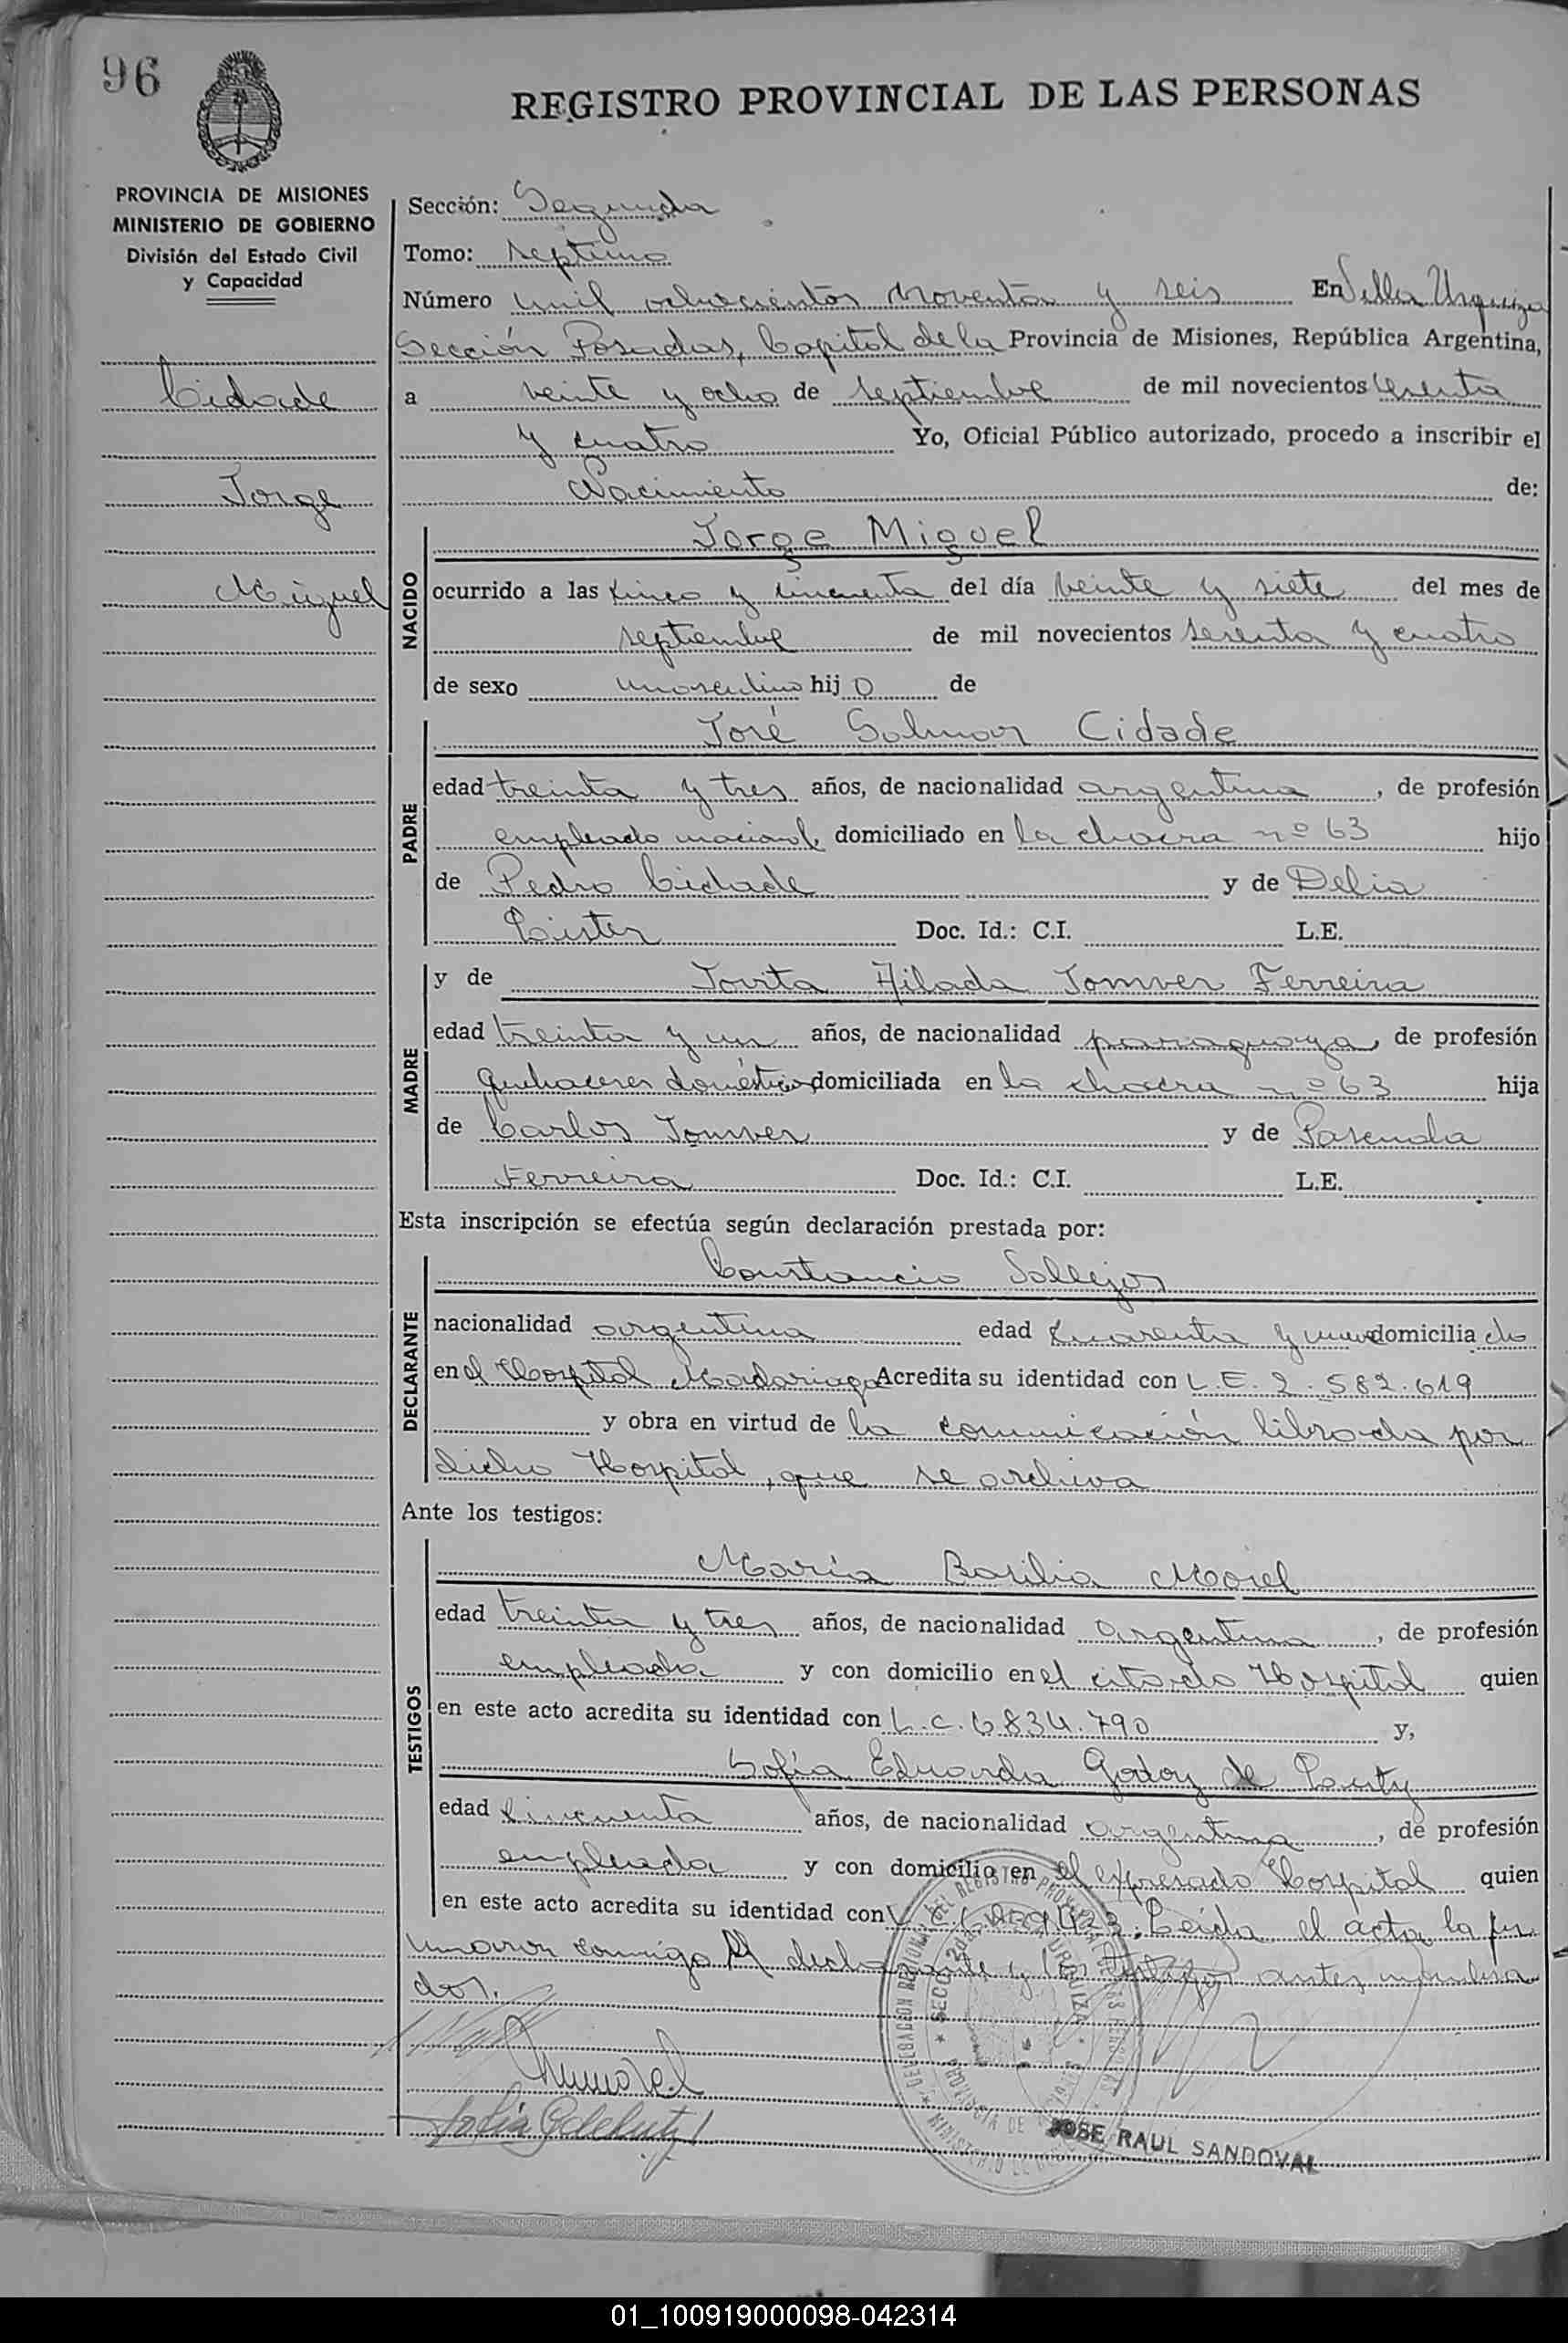 96
REGISTRO PROVINCIAL DE LAS PERSONAS
PROVINCIA DE MISIONES
MINISTERIO DE GOBIERNO
División del Estado Civil
y Capacidad
Cidade
Jorge
Miguel
Sección: Segunda
Tomo: septimo
Número mil ochocientos noventa y seis En Villa Urquiza
Sección Posadas, Capital de la Provincia de Misiones, República Argentina,
a veinte y ocho de septiembre de mil novecientos sesenta
y cuatro Yo, Oficial Público autorizado, procedo a inscribir el
Nacimiento de:
NACIDO
Jorge Miguel
ocurrido a las cinco y cincuenta del día veinte y siete del mes de
septiembre de mil novecientos sesenta y cuatro
de sexo masculino hijo de
PADRE
José Cidade
edad treinta y tres años, de nacionalidad argentina, de profesión
empleado nacional, domiciliado en la chacra nº 63 hijo
de Pedro Cidade y de Delia
Doc. Id.: C.I. L.E.
MADRE
y de Jovita Ferreira
edad treinta y un años, de nacionalidad paraguaya, de profesión
quehaceres domésticos domiciliada en la chacra nº 63 hija
de Carlos y de
Ferreira Doc. Id.: C.I. L.E.
Esta inscripción se efectúa según declaración prestada por:
DECLARANTE
Constancio Vallejos
nacionalidad argentina edad cuarenta y domiciliado
en el Hospital Madariaga Acredita su identidad con L.E. 2.582.619
y obra en virtud de la comunicación librada por
dicho Hospital, que se archiva
Ante los testigos:
TESTIGOS
María Basilia Morel
edad treinta y tres años, de nacionalidad argentina, de profesión
empleada y con domicilio en el citado Hospital quien
en este acto acredita su identidad con L.C. 6834.790 y,
Sofía Eduarda Godoy de
edad cincuenta años, de nacionalidad argentina, de profesión
empleada y con domicilio en el expresado Hospital quien
en este acto acredita su identidad con Leida el acta, la fir
maron conmigo el declarante y los testigos antes nombra
dos.
JOSE RAUL SANDOVAL
01_100919000098-042314